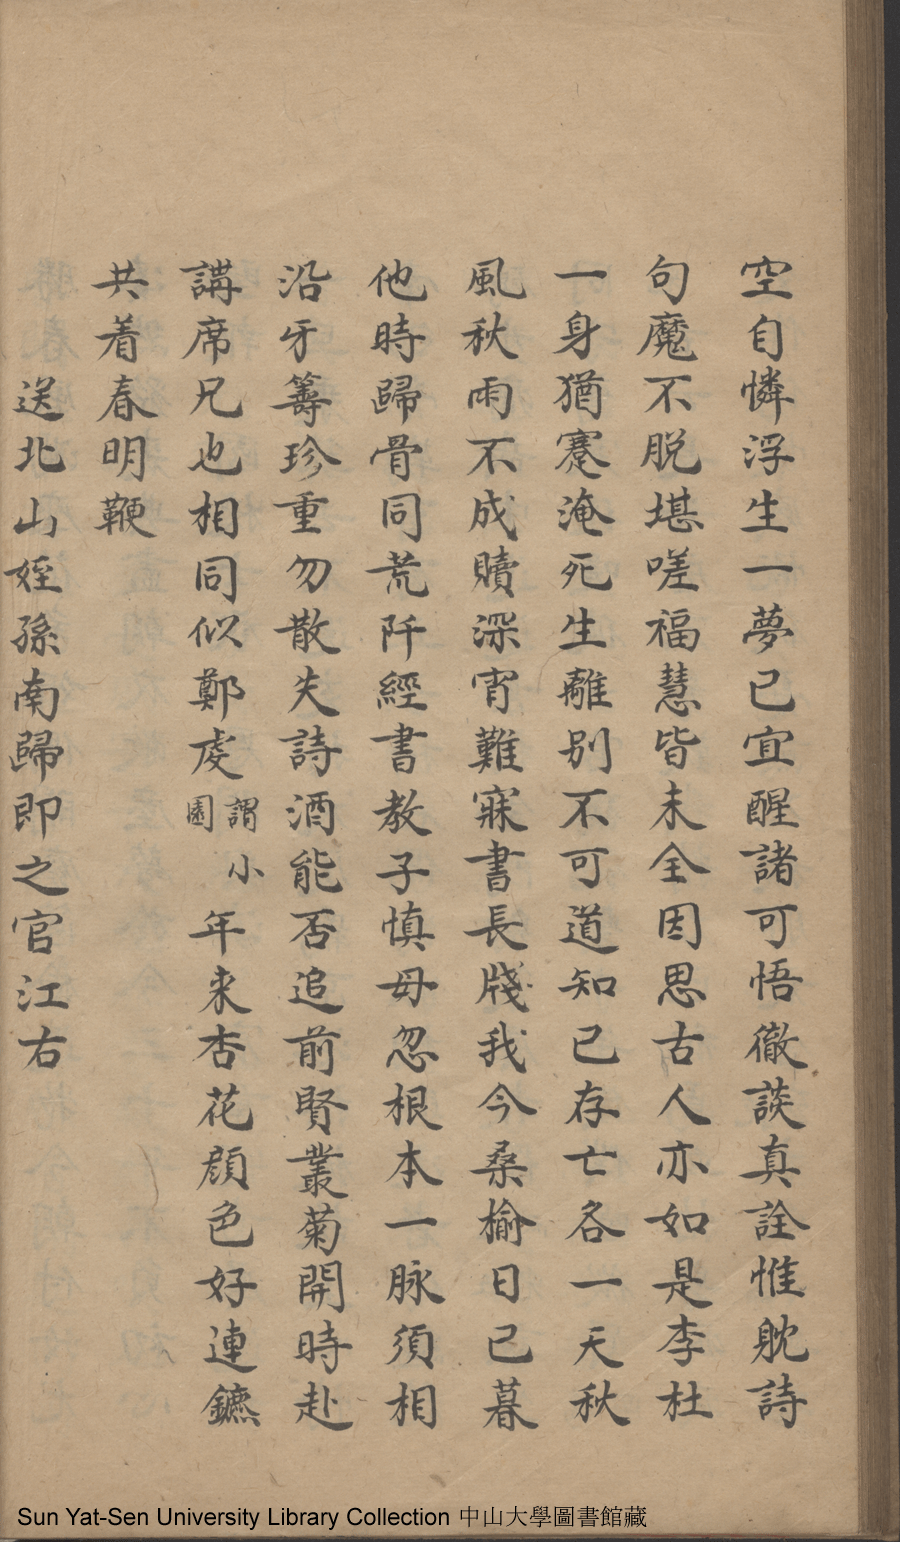 空自憐浮生一夢已宜醒諸可悟徹談真詮惟躭詩
句魔不脱堪嗟福慧皆未全因思古人亦如是李杜
一身猶蹇淹死生離别不可道知已存亡各一天秋
風秋雨不成贖深宵難寐書長牋我今桑榆日已暮
他時歸骨同荒阡經書教子慎毋忽根本一脉須相
沿牙籌珍重勿散失詩酒能否追前賢叢菊開時赴
講席兄也相同似鄭虔謂小園年来杏花顔色好連鑣
共着春明鞭
送北山姪孫南歸即之官江右
Sun Yat-Sen University Library Collection 中山大學圖書館藏